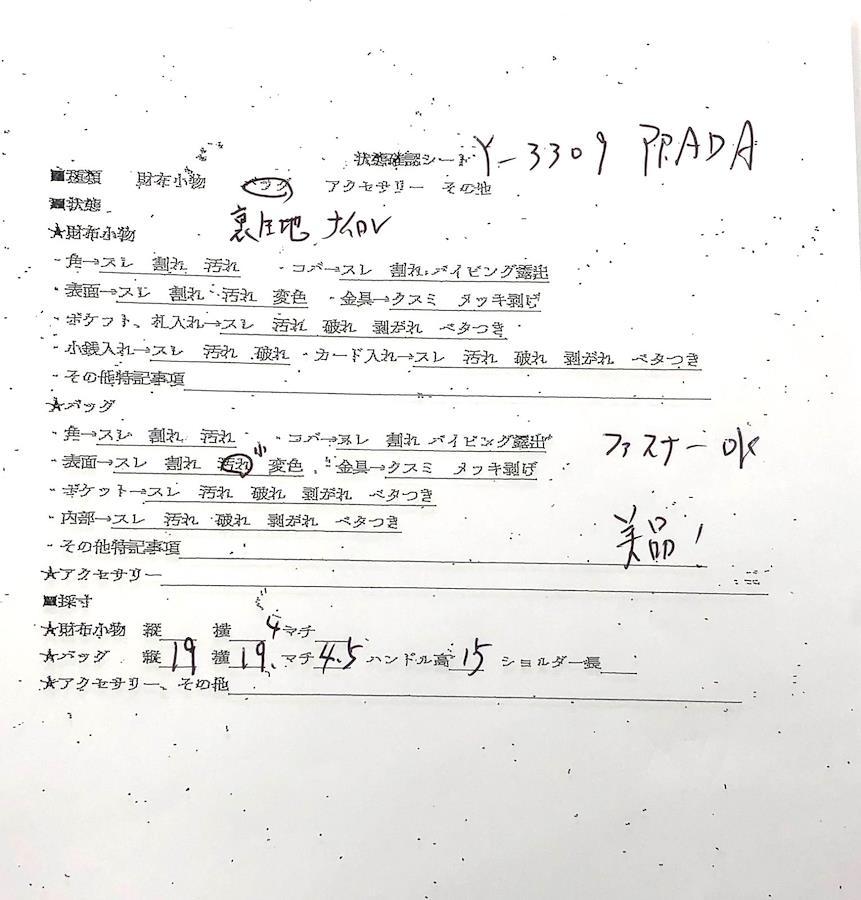 状態確認シート Y-3309 PRADA
■種類 財布小物 バッグ アクセサリー その他
■状態
裏生地 ナイロン
★財布小物
・角→スレ 割れ 汚れ ・コバ→スレ 割れ パイピング露出
・表面→スレ 割れ 汚れ 変色 ・金具→クスミ メッキ剥げ
・ポケット、札入れ→スレ 汚れ 破れ 剥がれ ベタつき
・小銭入れ→スレ 汚れ 破れ ・カード入れ→スレ 汚れ 破れ 剥がれ ベタつき
・その他特記事項
★バッグ
・角→スレ 割れ 汚れ ・コバ→スレ 割れ パイピング露出 ファスナーOK
・表面→スレ 割れ 汚れ 小 変色 ・金具→クスミ メッキ剥げ
・ポケット→スレ 汚れ 破れ 剥がれ ベタつき
・内部→スレ 汚れ 破れ 剥がれ ベタつき 美品!
・その他特記事項
★アクセサリー
■採寸
★財布小物 縦 横 4 マチ
★バッグ 縦19 横19 マチ4.5 ハンドル高15 ショルダー長
★アクセサリー、その他